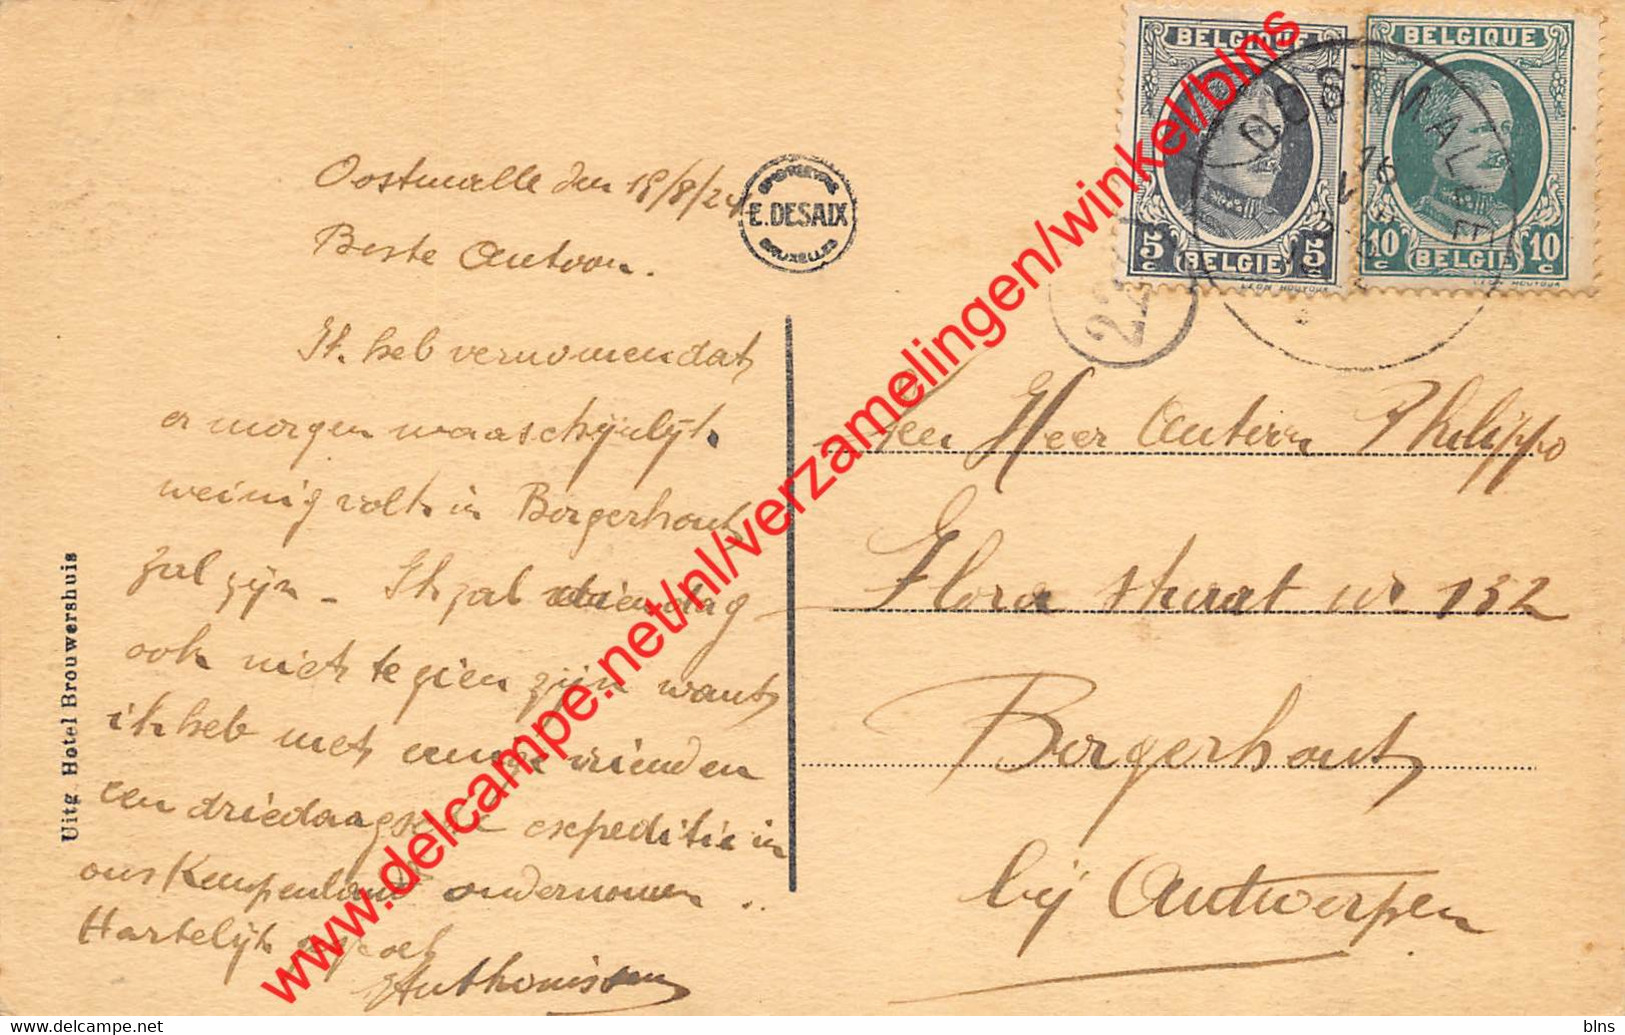 Oostmalle den 18/8/24
Beste Antoon.
Ik heb vernomen dat
er morgen waaschijnlijk
weinig volk in Borgerhout
zal zijn - Ik zal dag
ook niet te zien zijn want
ik heb met eenige vrienden
een driedaagsche expeditie in
ons Kempenland ondernomen.
Hartelijk gegroet
Anthonissen
Uitg. Hotel Brouwershuis
PHOTOTYPIE
E. DESAIX
BRUXELLES
BELGIQUE
5c 5c
BELGIE
LEON HOUYOUX
BELGIQUE
10c 10c
BELGIE
LEON HOUYOUX
OOSTMALLE
22
Den Heer Antoon Philippo
Flora straat nr 132
Borgerhout
bij Antwerpen
www.delcampe.net/nl/verzamelingen/winkel/blns
www.delcampe.net/nl/verzamelingen/winkel/blns
blns